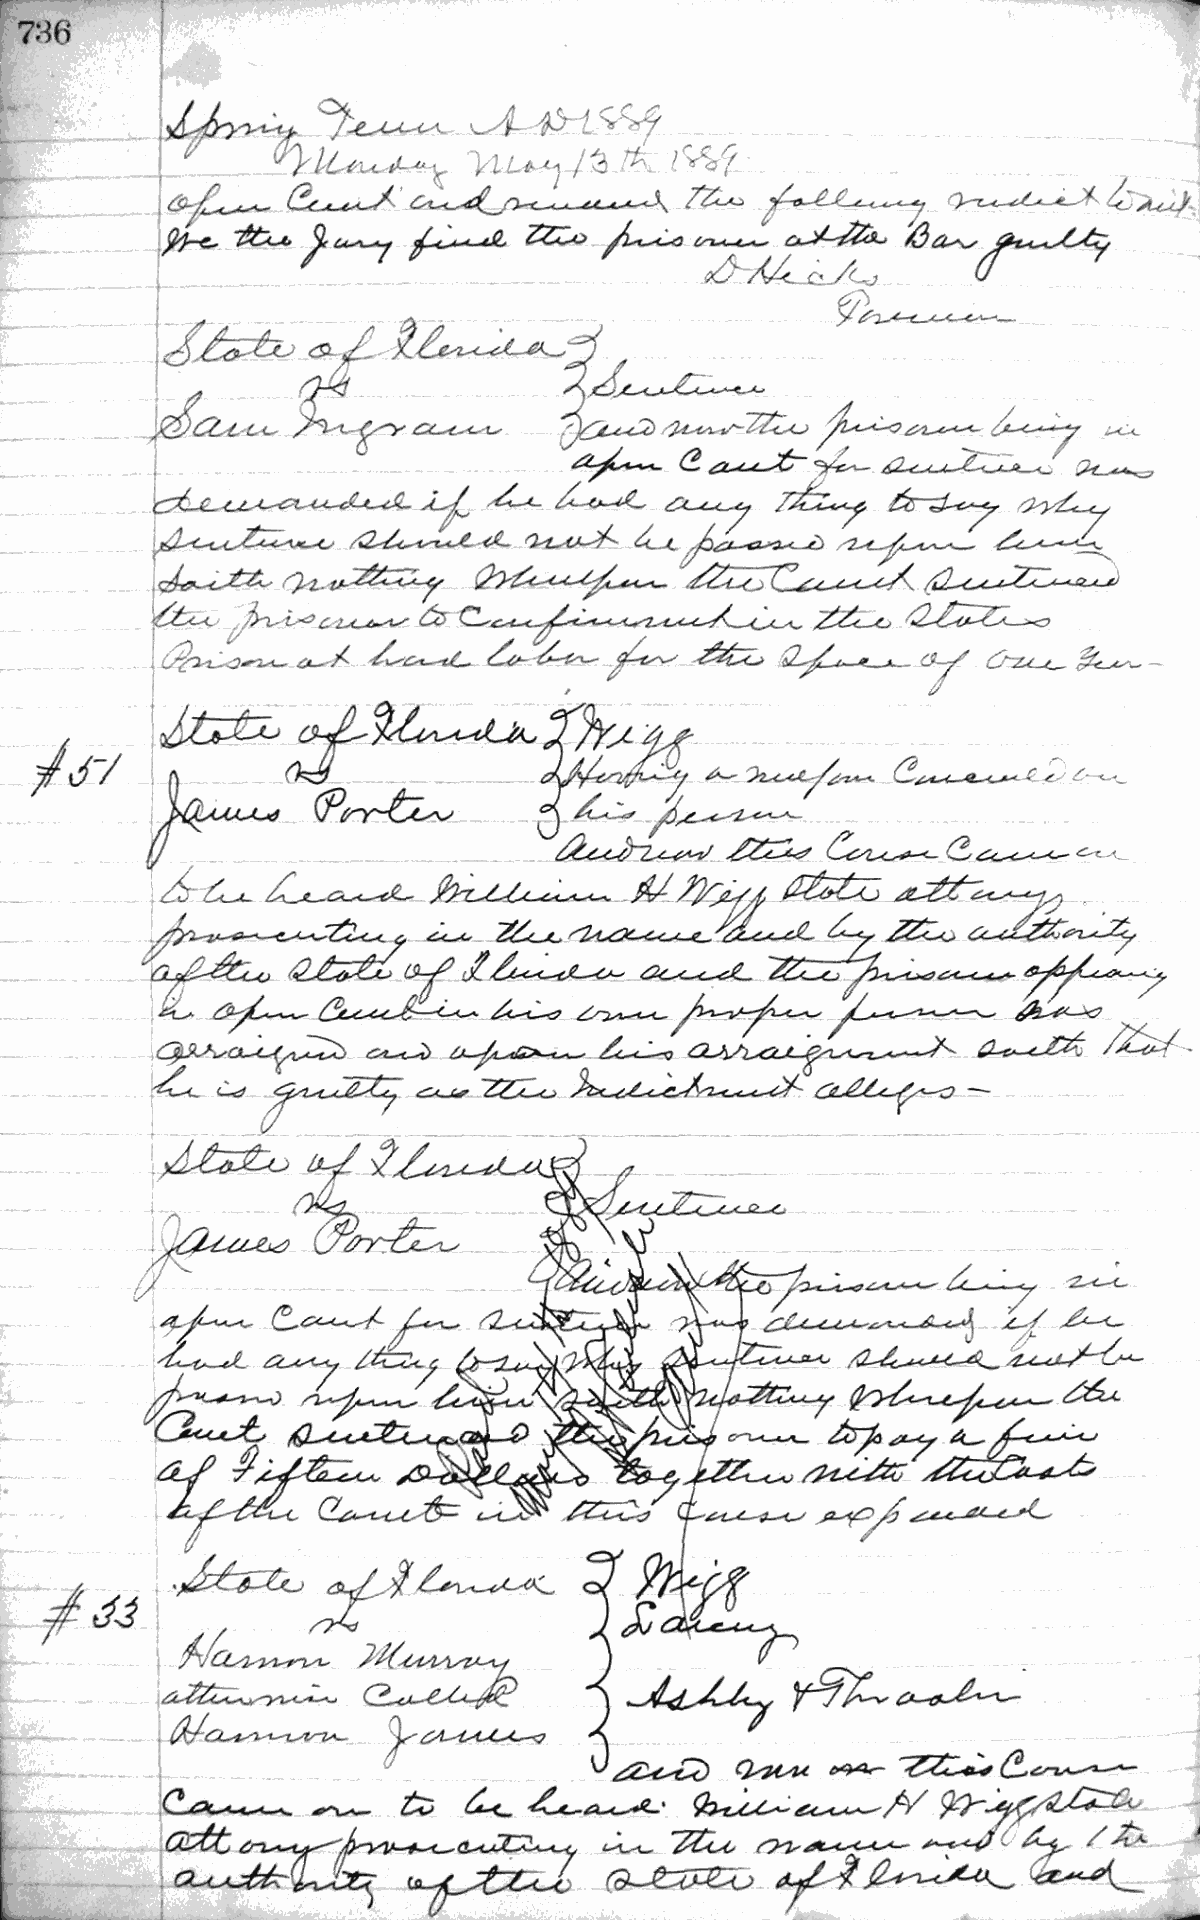 736
Spring Term A D 1889
Monday May 13th 1889
open Court and the following verdict towit
We the Jury find the prisoner at the Bar guilty
D Hicks
Foreman
State of Florida
vs
Sentence
Sam Ingram
and now the prisoner being in
open Court for sentence was
demanded if he had any thing to say why
sentence should not be passed upon him
saith nothing Whereupon the Court sentenced
the prisoner to Confinement in the States
Prison at hard labor for the space of one Year
State of Florida
Wigg
#51
vs
Having a weapon Concealed on
James Porter
his person
And now this Cause Came on
to be heard William H Wigg State attorney
prosecuting in the name and by the authority
of the State of Florida and the prisoner appearing
in open Court in his own proper person was
arraigned and upon his arraignment saith that
he is guilty as the Indictment alleges
State of Florida
vs
Sentence
James Porter
And now the prisoner being in
open Court for sentence was demanded if he
had any thing to say why sentence should not be
passed upon him saith nothing Whereupon the
Court sentenced the prisoner to pay a fine
of Fifteen Dollars together with the Costs
of the Court in this cause expended
State of Florida
Wigg
#33
vs
Larceny
Harmon Murray
otherwise Called
Ashby &
Harmon James
and now on this Cause
Came on to be heard William H Wigg State
attorny prosecuting in the name and by the
authority of the State of Florida and